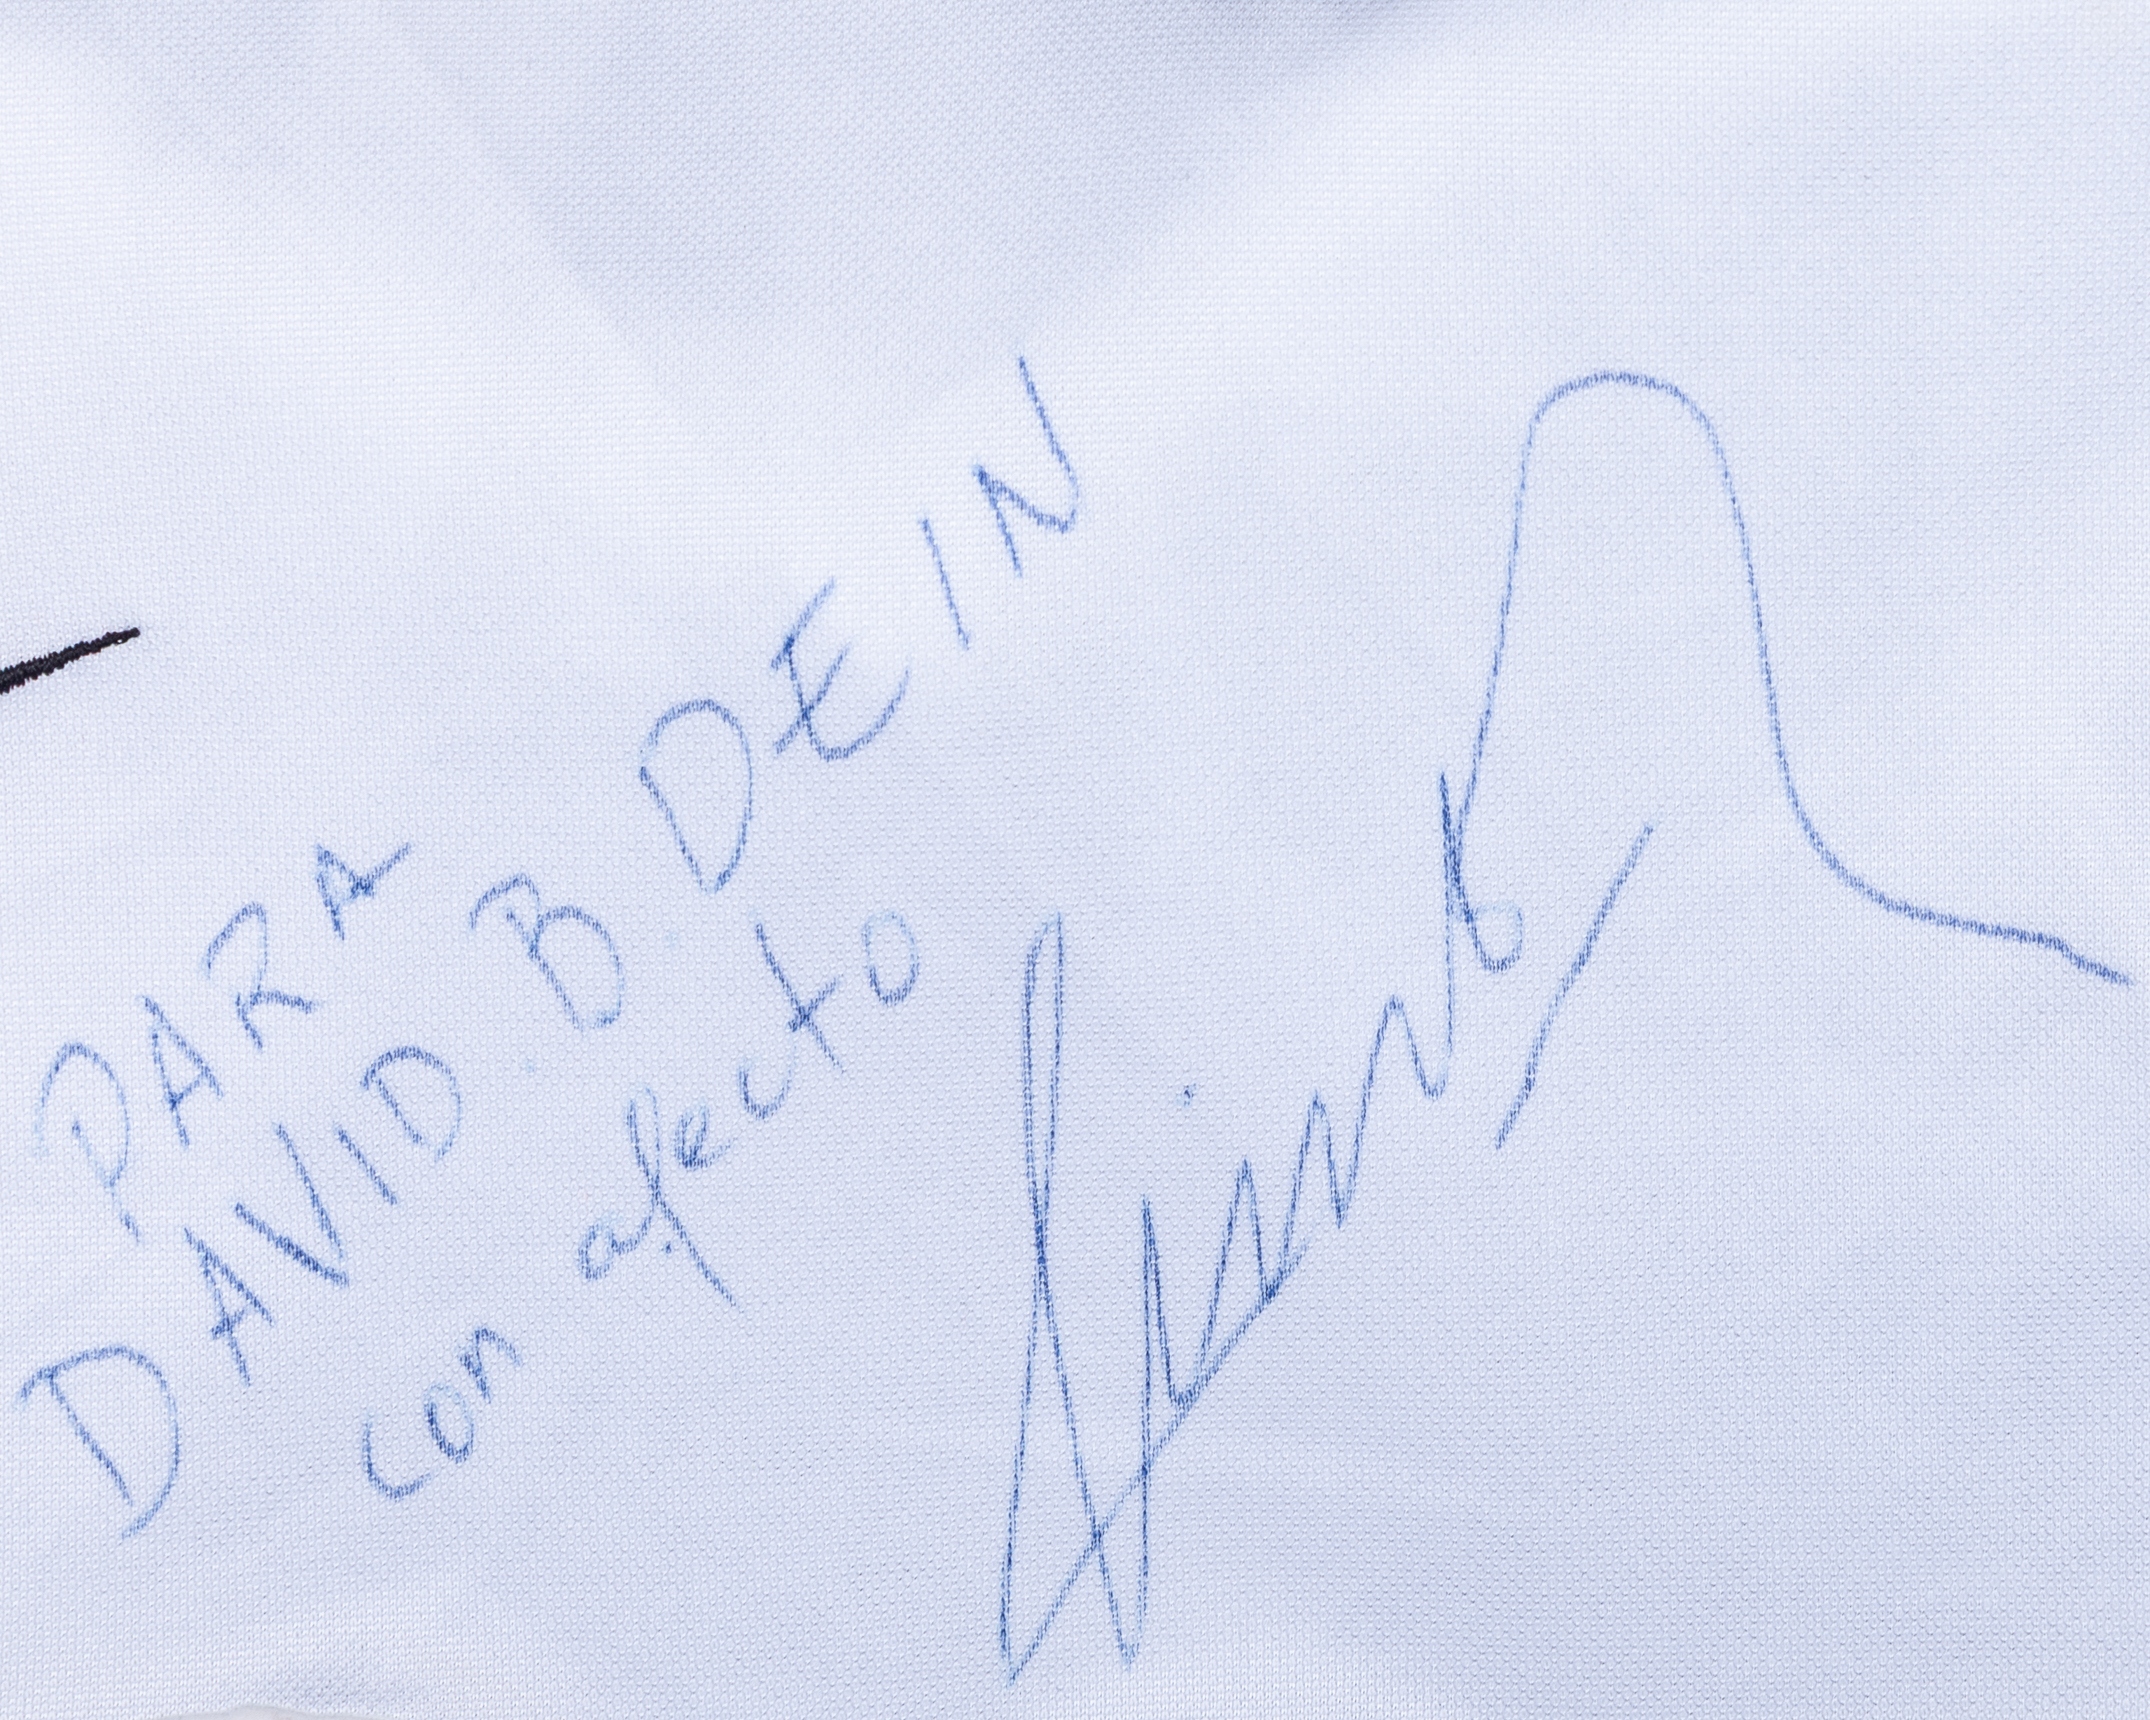 PARA
DAVID B DEIN
con afecto